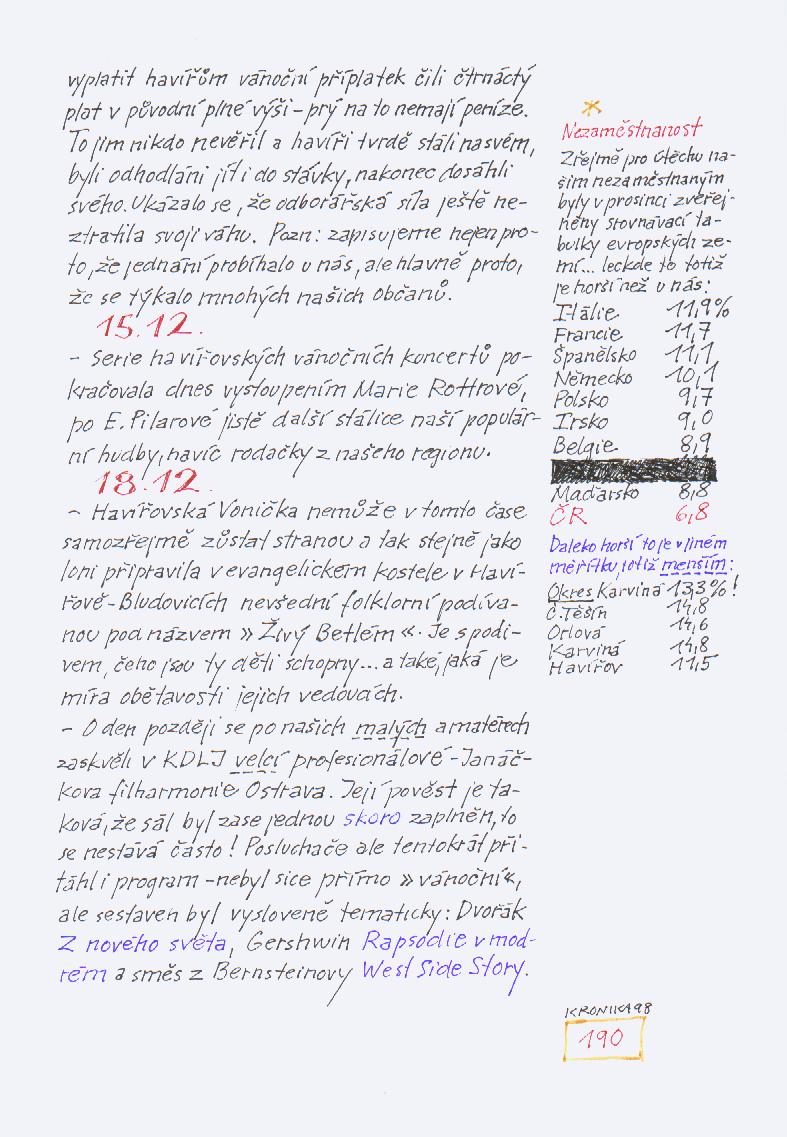 vyplatit havířům vánoční příplatek čili čtrnáctý
plat v původní plné výši – prý na to nemají peníze.
To jim nikdo nevěřil a havíři tvrdě stáli na svém,
byli odhodláni jíti do stávky, nakonec dosáhli
svého. Ukázalo se, že odborářská síla ještě ne-
ztratila svoji váhu. Pozn: zapisujeme nejen pro-
to, že jednání probíhalo u nás, ale hlavně proto,
že se týkalo mnohých našich občanů.
15.12.
– Serie havířovských vánočních koncertů po-
kračovala dnes vystoupením Marie Rottrové,
po E. Pilarové jistě další stálice naší populár-
ní hudby, navíc rodačky z našeho regionu.
18.12.
– Havířovská Vonička nemůže v tomto čase
samozřejmě zůstat stranou a tak stejně jako
loni připravila v evangelickém kostele v Haví-
řově-Bludovicích nevšední folklorní podíva-
nou pod názvem » Živý Betlém «. Je s podi-
vem, čeho jsou ty děti schopny... a také, jaká je
míra obětavosti jejich vedoucích.
– O den později se po našich malých amatérech
zaskvěli v KDLJ velcí profesionálové – Janáč-
kova filharmonie Ostrava. Její pověst je ta-
ková, že sál byl zase jednou skoro zaplněn, to
se nestává často! Posluchače ale tentokrát při-
táhl i program – nebyl sice přímo » vánoční«,
ale sestaven byl vysloveně tematicky: Dvořák
Z nového světa, Gershwin Rapsodie v mod-
rém a směs z Bernsteinovy West Side Story.
Nezaměstnanost
Zřejmě pro útěchu na-
šim nezaměstnaným
byly v prosinci zveřej-
něny srovnávací ta-
bulky evropských ze-
mí... leckde to totiž
je horší než u nás:
Itálie 11,9%
Francie 11,7
Španělsko 11,1
Německo 10,1
Polsko 9,7
Irsko 9,0
Belgie 8,9
Maďarsko 8,8
ČR 6,8
Daleko horší to je v jiném
měřítku, totiž menším:
Okres Karviná 13,3%!
Č. Těšín 14,8
Orlová 14,6
Karviná 14,8
Havířov 11,5
KRONIKA 98
190